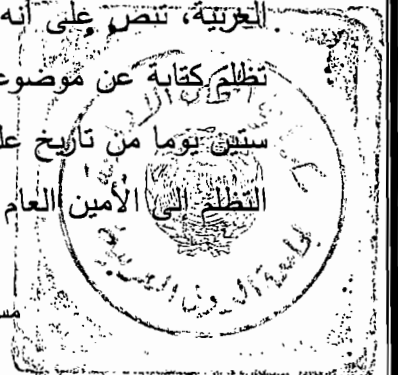 العربية، تنص على أنه
تظلم كتابة عن موضوع
ستين يوما من تاريخ عل
التظلم إلى الأمين العام
جامعة الدول العربية
مس